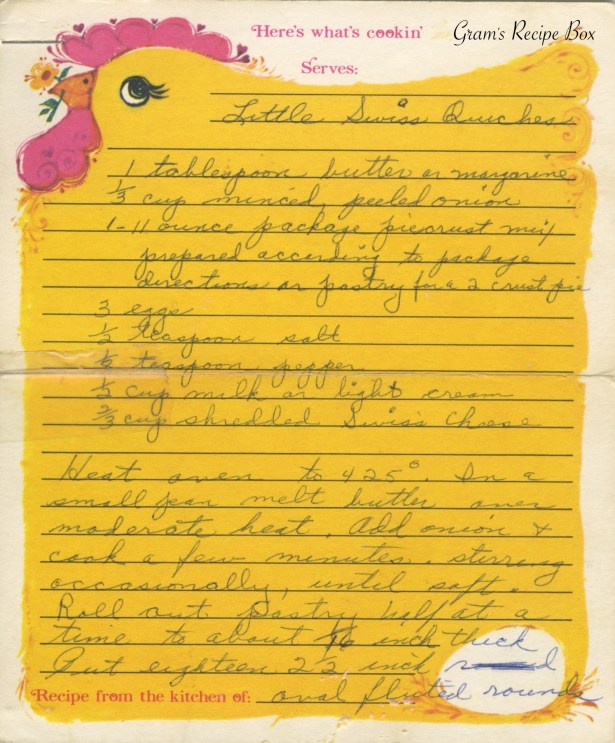 Here's what's cookin' Gram's Recipe Box
Serves:
Little Swiss Quiches
1 tablespoon butter or margarine
1/3 cup minced, peeled onion
1-11 ounce package piecrust mix
prepared according to package
directions or pastry for a 2 crust pie
3 eggs
1/2 teaspoon salt
teaspoon pepper
1/2 cup milk or light cream
2/3 cup shredded Swiss Cheese
Heat oven to 425°. In a
small pan melt butter over
moderate heat. Add onion &
cook a few minutes, stirring
occasionally, until soft.
Roll out pastry half at a
time to about 1/16 inch thick
Cut eighteen 2 1/2 inch
Recipe from the kitchen of: oval fluted rounds